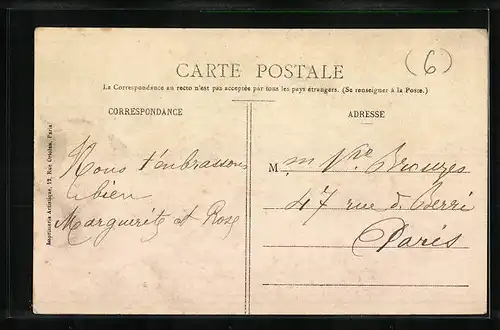 (6)
CARTE POSTALE
La Correspondance au recto n'est pas acceptée par tous les pays étrangers. (Se renseigner à la Poste.)
CORRESPONDANCE
Nous t'enbrassons
bien
Marguerite et Rose
ADRESSE
M
47 rue d Berri
Paris
Imprimerie Artistique, 17, Rue Paris